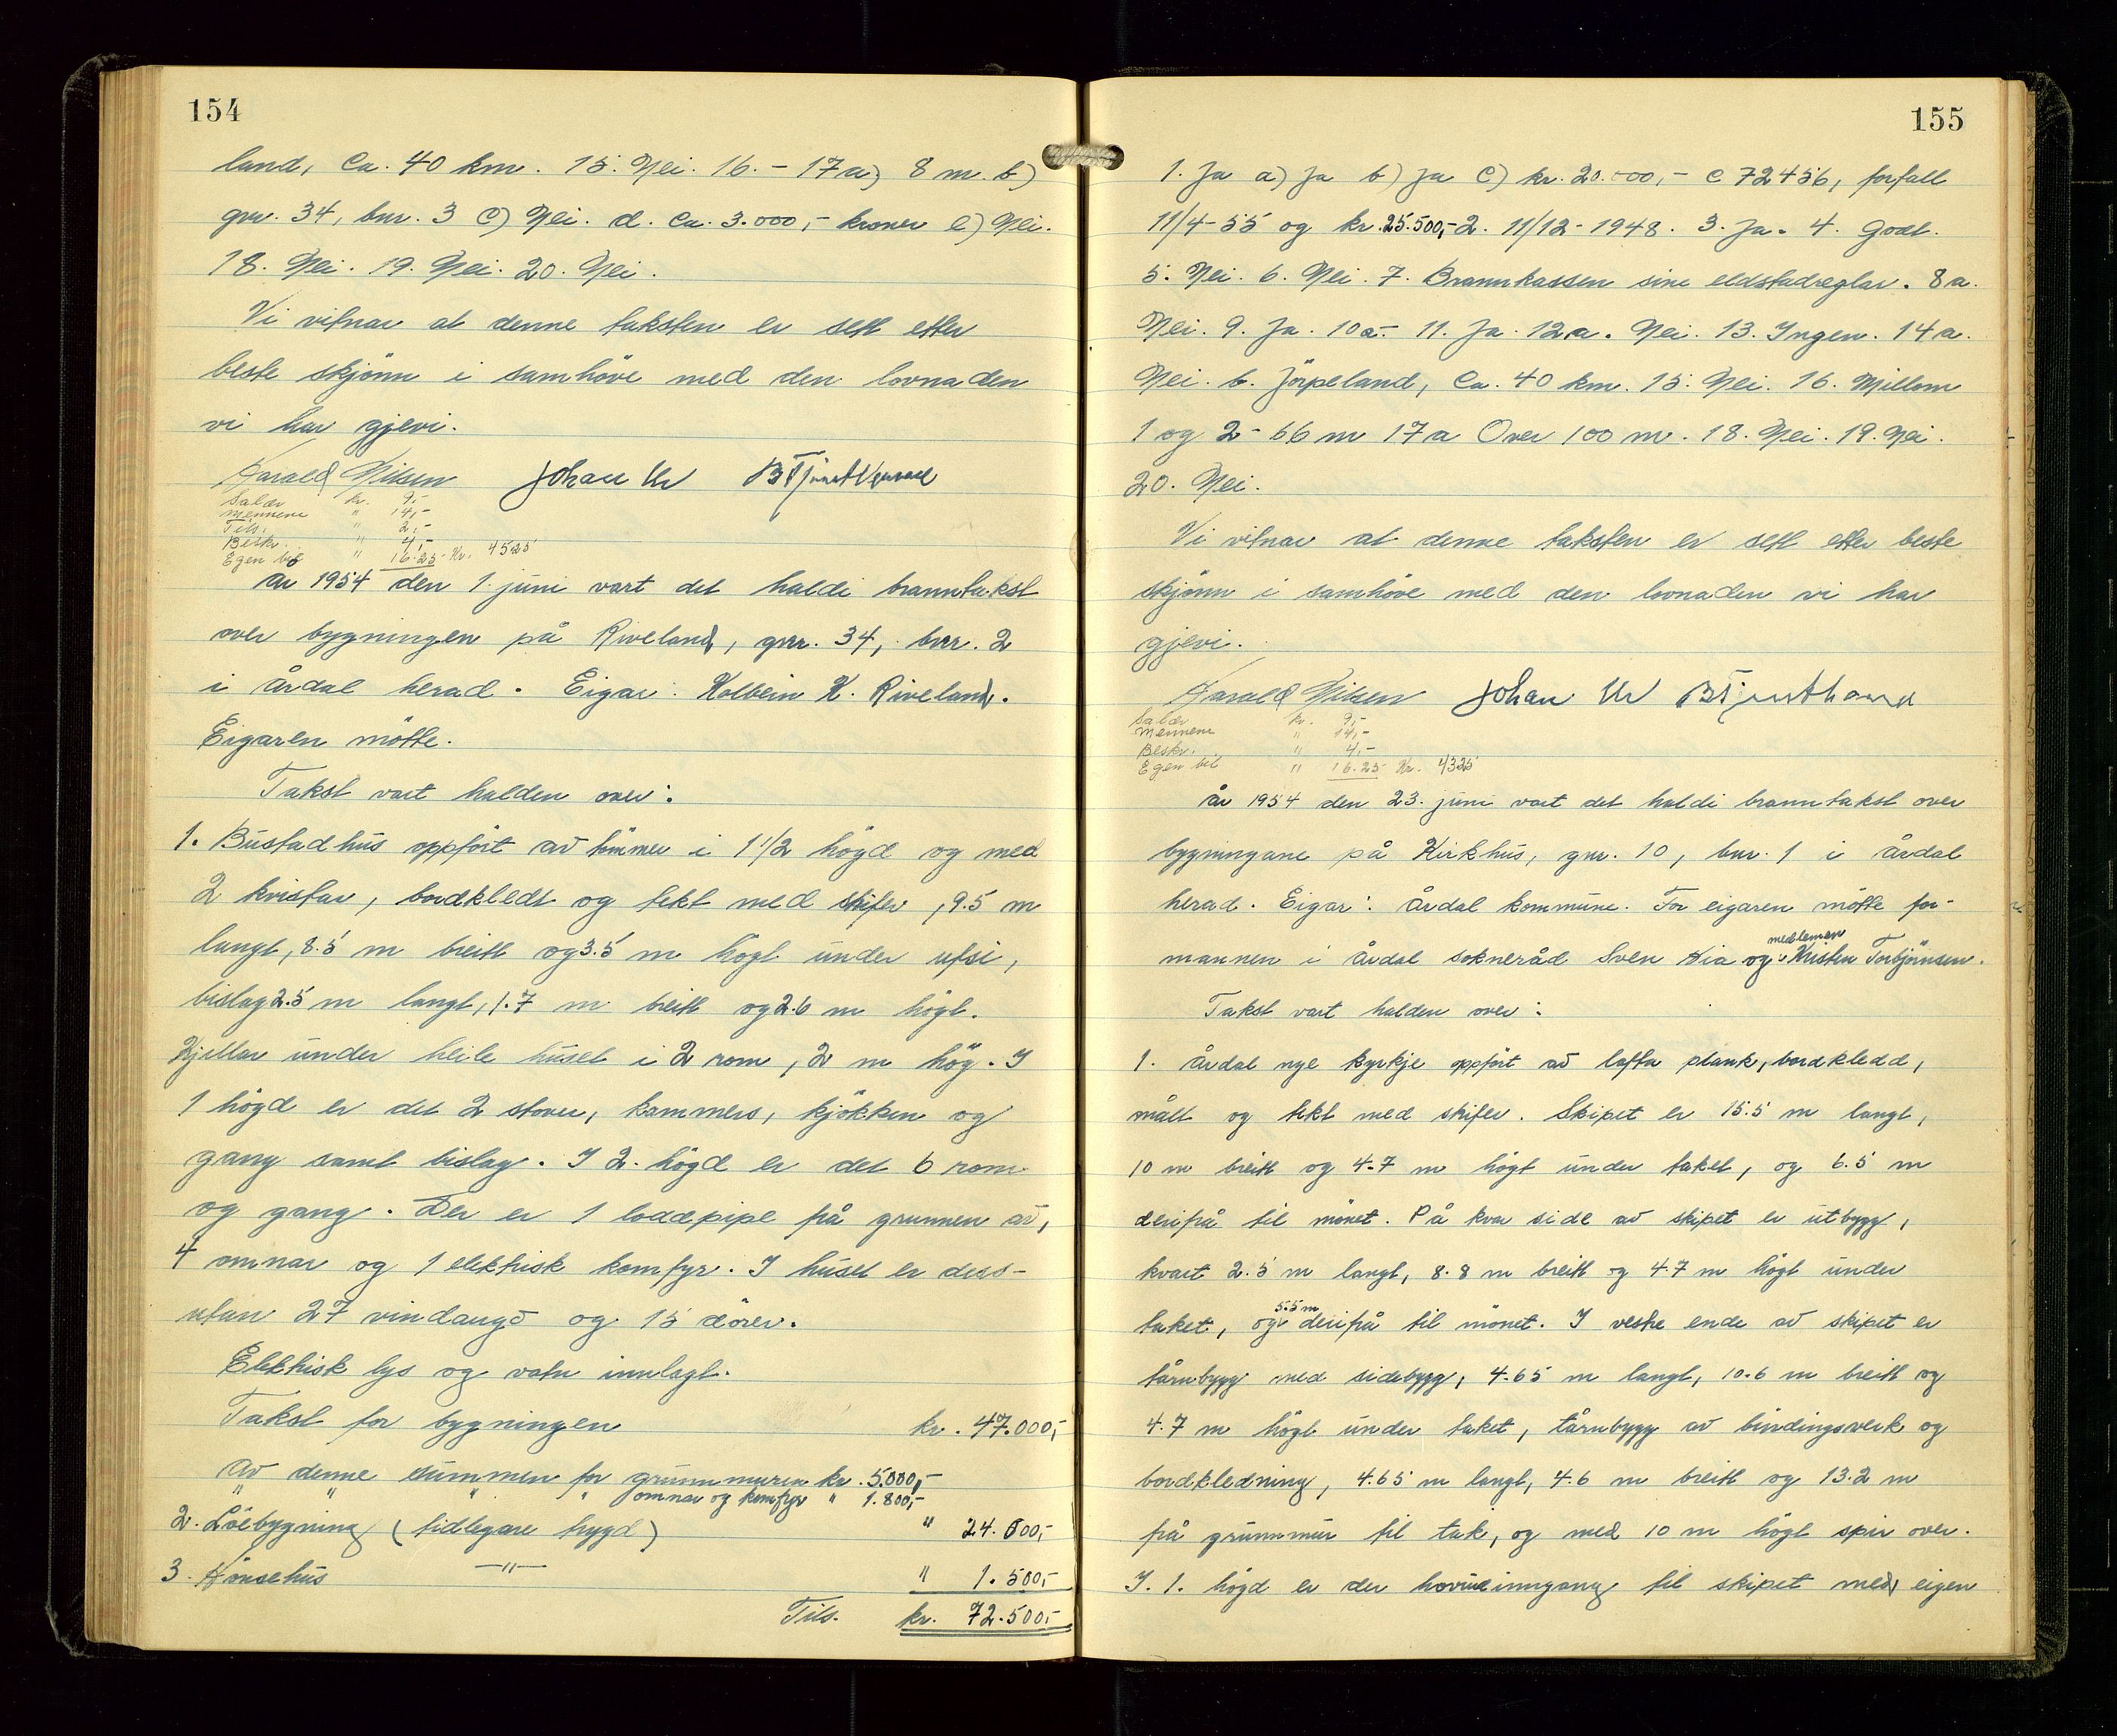 154
land, Ca. 40 km. 15. Nei. 16. - 17a) 8 m. b)
gnr. 34, bnr. 3 c) Nei. d. Ca. 3.000,- kroner e) Nei.
18. Nei. 19. Nei. 20. Nei.
Vi vitnar at denne taksten er sett etter
beste skjönn i samhöve med den lovnaden
vi har gjevi.
Harald Nilsen Johan Ur
Salær kr. 9,-
Mennene " 14,-
Tils. " 2,-
Beskr. " 4,-
Egen bil " 16.25 Kr. 4525
År 1954 den 1. juni vart det haldi branntakst
over bygningen på Riveland, gnr. 34, bnr. 2
i Årdal herad. Eigar: Kolbein K. Riveland.
Eigaren mötte.
Takst vart halden over:
1. Bustadhus oppfört av tömmer i 1 1/2 högd og med
2 kvistar, bordkledt og tekt med skifer, 9.5 m
langt, 8.5 m breitt og 3.5 m högt under ufsi,
bislag 2.5 m langt, 1.7 m breitt og 2.6 m högt.
Kjellar under heile huset i 2 rom, 2 m hög. I
1 högd er det 2 stover, kammers, kjökken og
gang samt bislag. I 2. högd er det 6 rom
og gang. Der er 1 loddpipe frå grunnen av,
4 omnar og 1 elektrisk komfyr. I huset er dess-
utan 27 vindaugo og 15 dörer.
Elektrisk lys og vatn innlagt.
Takst for bygningen kr. 47.000,-
Av denne summen for grunnmuren kr. 5.000,-
" " " " omnar og komfyr " 1.800,-
2. Löebygning (tidlegare trygd) " 24.000,-
3. Hönsehus —"— " 1.500,-
Tils. kr. 72.500,-
155
1. Ja a) Ja b) Ja c) kr. 20.000,- C 72456, forfall
11/4-55 og kr. 25.500,- 2. 11/12-1948. 3. Ja. 4. Godt.
5. Nei. 6. Nei. 7. Brannkassen sine eldstadreglar. 8a.
Nei. 9. Ja. 10a.- 11. Ja. 12.a. Nei. 13. Ingen. 14a.
Nei. b. Jörpeland, Ca. 40 km. 15. Nei. 16. Millom
1 og 2 - 66 m 17a Over 100 m. 18. Nei. 19. Nei.
20. Nei.
Vi vitnar at denne taksten er sett etter beste
skjönn i samhöve med den lovnaden vi har
gjevi.
Harald Nilsen Johan Ur
Salær kr. 9,-
Mennene " 14,-
Beskr. " 4,-
Egen bil " 16.25 Kr. 4325
År 1954 den 23. juni vart det haldi branntakst over
bygningane på Kirkhus, gnr. 10, bnr. 1 i Årdal
herad. Eigar: Årdal kommune. For eigaren mötte for-
mannen i Årdal sokneråd Sven Hia og medlemen Kristen Torbjörnsen.
Takst vart halden over:
1. Årdal nye kyrkje oppfört av lafta plank, bordkledd,
målt og tekt med skifer. Skipet er 15.5 m langt,
10 m breitt og 4.7 m högt under taket, og 6.5 m
derifrå til mönet. På kvar side av skipet er utbygg,
kvart 2.5 m langt, 8.8 m breitt og 4.7 m högt under
taket, og 5.5 m derifrå til mönet. I vestre ende av skipet er
tårnbygg med sidebygg, 4.65 m langt, 10.6 m breitt og
4.7 m högt under taket, tårnbygg av bindingsverk og
bordkledning, 4.65 m langt, 4.6 m breitt og 13.2 m
frå grunnmur til tak, og med 10 m högt spir over.
I. 1. högd er der hovudinngang til skipet med eigen